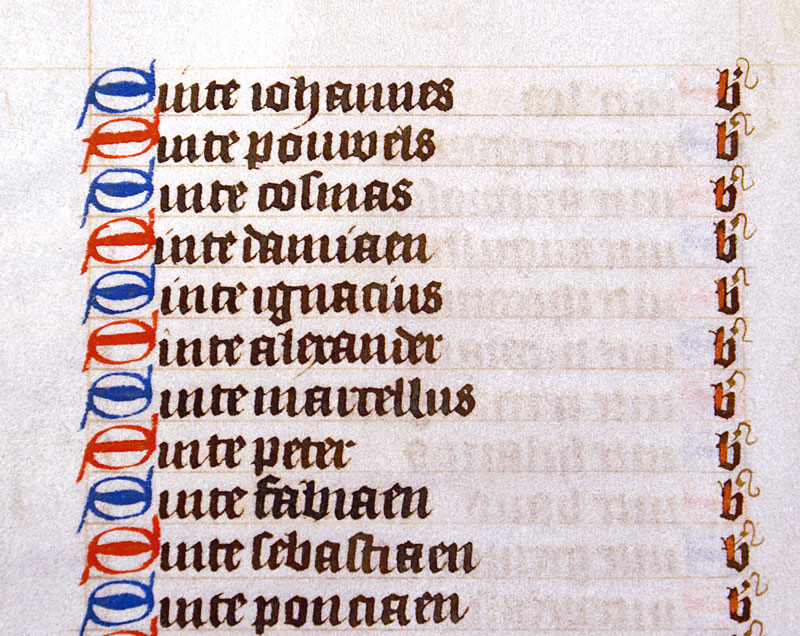 Sinte iohannes b
Sinte pouwels b
Sinte cosmas b
Sinte damiaen b
Sinte ignacius b
Sinte alexander b
Sinte marcellus b
Sinte peter b
Sinte fabiaen b
Sinte sebastiaen b
Sinte ponciaen b